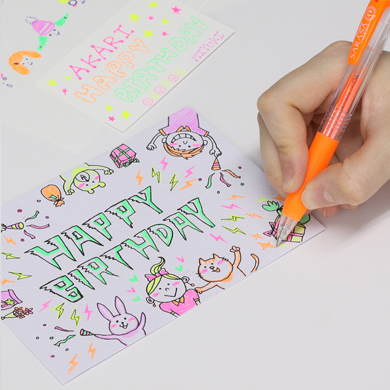 AKARI
HAPPY
BIRTHDAY
SARASA CLiP
HAPPY
BIRTHDAY